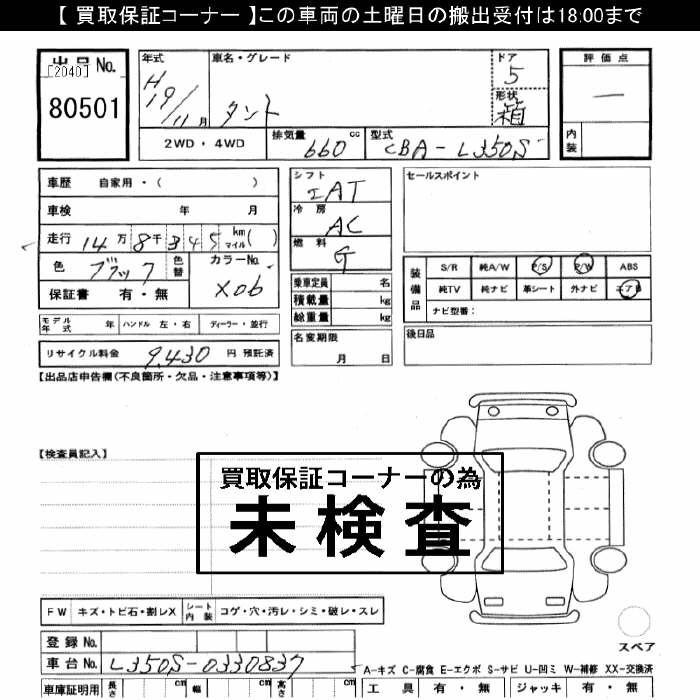 【 買取保証コーナー 】この車両の土曜日の搬出受付は18:00まで
出品 No.
[2040]
80501
年式
H19/11月
車名・グレード
タント
ドア
5
形状
箱
評価点
―
内装
2WD ・ 4WD
排気量 660 cc
型式 CBA-L350S
車歴 自家用・( )
車検 年 月
走行 14万8千345 km マイル( )
色 ブラック 色替
カラーNo. X06
保証書 有・無
シフト
IAT
冷房
AC
燃料
G
乗車定員 名
積載量 kg
総重量 kg
セールスポイント
装備品
S/R 純A/W P/S P/W ABS
純TV 純ナビ 革シート 外ナビ エアB
ナビ型番:
モデル年式 年 ハンドル 左・右 ディーラー・並行
リサイクル料金 9,430 円 預託済
名変期限
月 日
後日品
【出品店申告欄(不良個所・欠品・注意事項等)】
【検査員記入】
買取保証コーナーの為
未検査
FW キズ・トビ石・割レX シート内装 コゲ・穴・汚レ・シミ・破レ・スレ
スペア
登録 No.
車台 No. L350S-0330837
A-キズ C-腐食 E-エクボ S-サビ U-凹ミ W-補修 XX-交換済
車庫証明用 長さ cm 幅 cm 高さ cm
工具 有・無 ジャッキ 有・無